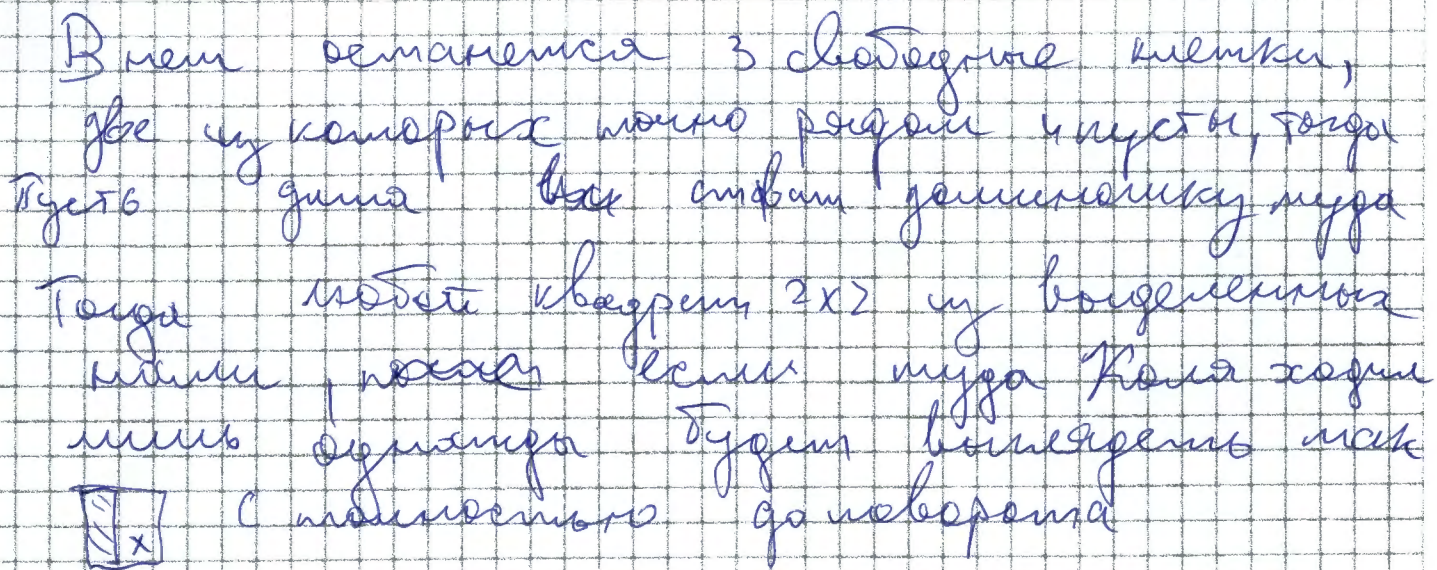 В нем останется 3 свободные клетки,
две из которых точно рядом и пусты, тогда
Пусть дима ставит доминошку туда
Тогда любой квадрат 2x2 из выделенных
ними, если туда Коля ходил
лишь однажды будет выглядеть так
x с точностью до поворота